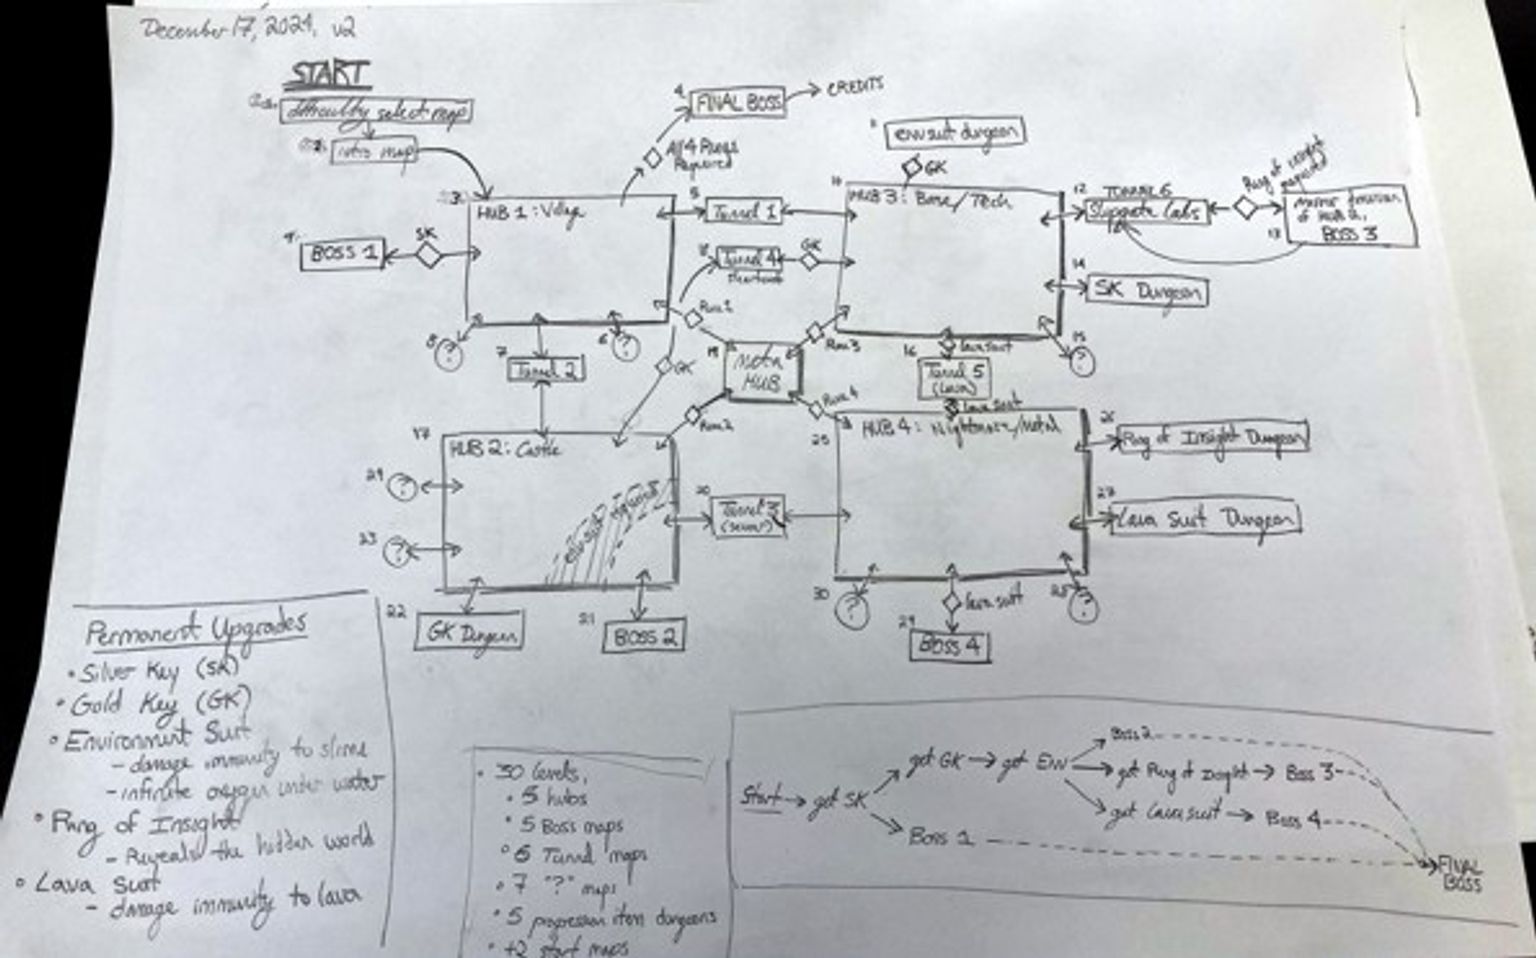 December 17, 2024, v2
START
difficulty select map
intro map
4
FINAL BOSS
CREDITS
All 4 Runes
Required
env suit dungeon
GK
3
HUB 1: Village
5
Tunnel 1
10
HUB 3: Base/Tech
12
TUNNEL 6
Slipgate Labs
Ring of insight
required
13
mirror dimension
of HUB 2,
BOSS 3
9
BOSS 1
SK
Tunnel 4
GK
14
SK Dungeon
8
?
7
Tunnel 2
6
?
Rune 1
GK
19
Meta
HUB
Rune 3
16
lava suit
Tunnel 5
(lava)
lava suit
15
?
17
HUB 2: Castle
Rune 2
Rune 4
25
HUB 4: Nightmare/Metal
26
Ring of Insight Dungeon
24
?
23
?
env suit required
20
Tunnel 3
(sewer)
27
Lava Suit Dungeon
22
GK Dungeon
21
BOSS 2
30
?
lava suit
29
BOSS 4
28
?
Permanent Upgrades
• Silver Key (SK)
• Gold Key (GK)
• Environment Suit
- damage immunity to slime
- infinite oxygen under water
• Ring of Insight
- Reveals the hidden world
• Lava Suit
- damage immunity to lava
• 30 levels,
• 5 hubs
• 5 Boss maps
• 6 Tunnel maps
• 7 "?" maps
• 5 progression item dungeons
• +2 start maps
Start → get SK
get GK → get Env
Boss 2
get Ring of Insight → Boss 3
get Lava suit → Boss 4
Boss 1
FINAL
BOSS